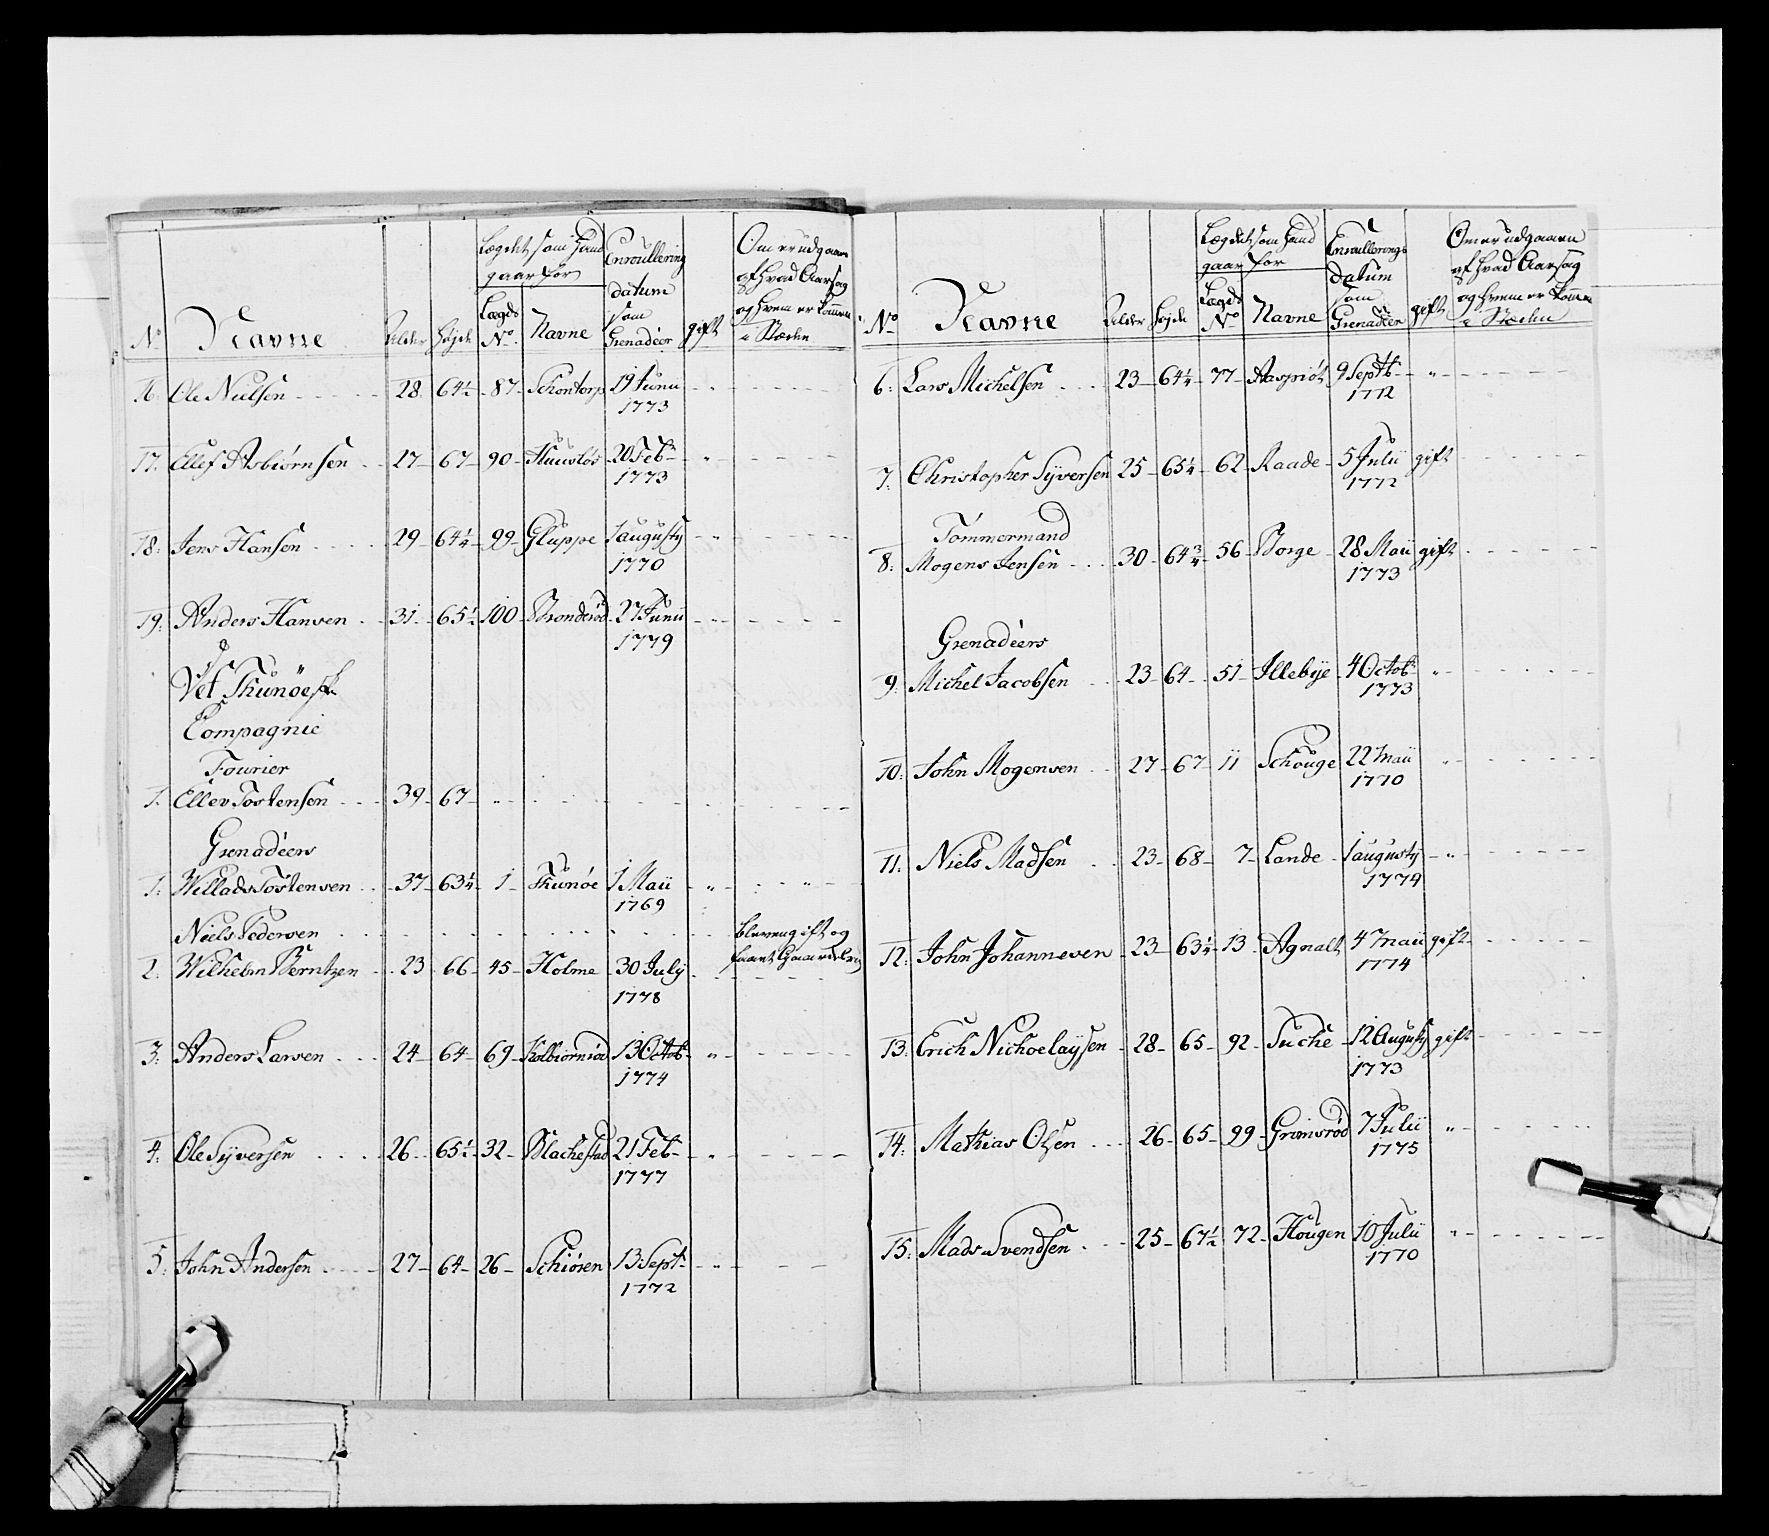 Lægdet som hand gaar for
Enroullering datum som Grenadéer
Om er udgaaen af hvad Aarsag og hvem er kommen i Stæden
No Navne Alder Høyde Lægds No. Navne gift
16 Ole Nielsen 28 64½ 87 Schontorp 19 Junii
1773
17. Ellef Asbiørnsen 27 67 90 20 Feb:
1773
18: Jens Hansen 29 64¼ 99 Gluppe 1 augusty
1770
19: Anders Hansen 31 65½ 100 Brønderød 27 Junii
1779
Vet Thunøesk
Compagnie
Fourier
1. Ellev Tostensen 39 67
Grenadéers
1. Willads Tostensen 37 63¼ 1 Thunøe 1 Maii
1769
Niels Pedersen bleven gift og
2. Wilhelm Berntzen 23 66 45 Holme 30 July faaet Gaardbrug
1778
3: Anders Larsen 24 64 69 Kolbiørnsrød 13 Octob:
1774
4: Ole Syversen 26 65½ 32 Blachestad 21 Feb:
1777
5: John Andersen 27 64 26 Schiøren 13 Sept:
1772
Lægdet som hand gaar for
Enroullerings datum som Grenadéer
Om er udgaaen af hvad Aarsag og hvem er kommen i Stæden
No Navne Alder Høyde Lægds No Navne gift
6: Lars Michelsen 23 64¼ 77 9 Septb:
1772
7: Christopher Syversen 25 65¼ 62 Raade 5 Julii gift
1772
Tømmermand
8: Mogens Jensen 30 64¾ 56 Borge 28 Maii gift
1773
Grenadéers
9: Michel Jacobsen 23 64 51 Illebye 4 Octob:
1773
10: John Mogensen 27 67 11 Schouge 22 maii
1770
11: Niels Madsen 23 68 7 Lande 1 augusty
1779
12: John Johannesen 23 63¼ 13 Agnalt 4 maii gift
1774
13: Erich Nichoelaysen 28 65 92 Suche 12 Augusty gift
1773
14: Mathias Olsen 26 65 99 Grimsrød 7 Julii
1775
15: Mads Svendsen 25 67½ 72 Hougen 10 Julii
1770